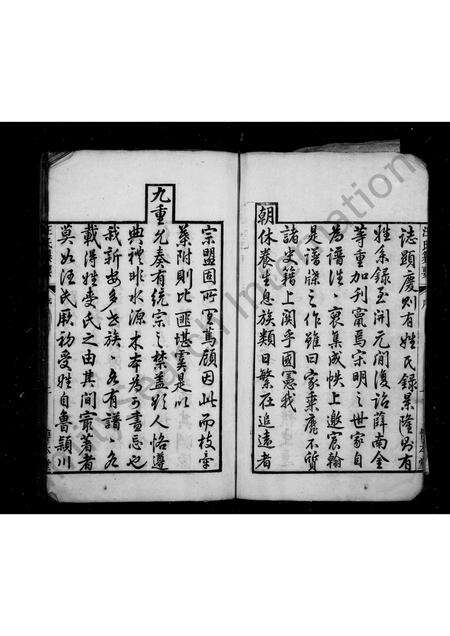 誌顯慶則有姓氏錄景隆則有
姓系錄至開元間復詔薛南金
等重加刊竄焉宋明之世家自
為譜迭裒集成帙上邀宸翰
是譜牒之作雖曰家乘靡不質
諸史籍上關乎國憲我
朝休養生息族類日繁在追遠者
宗盟固所宜篤顧因此而枝牽
葉附則比匪堪虞是以
九重允奏有統宗之禁蓋欲人恪遵
典禮非水源木本為可盡忘也
我新安多世族各有譜各
載得姓受氏之由其間最著者
莫如汪氏肇初受姓自魯潁川